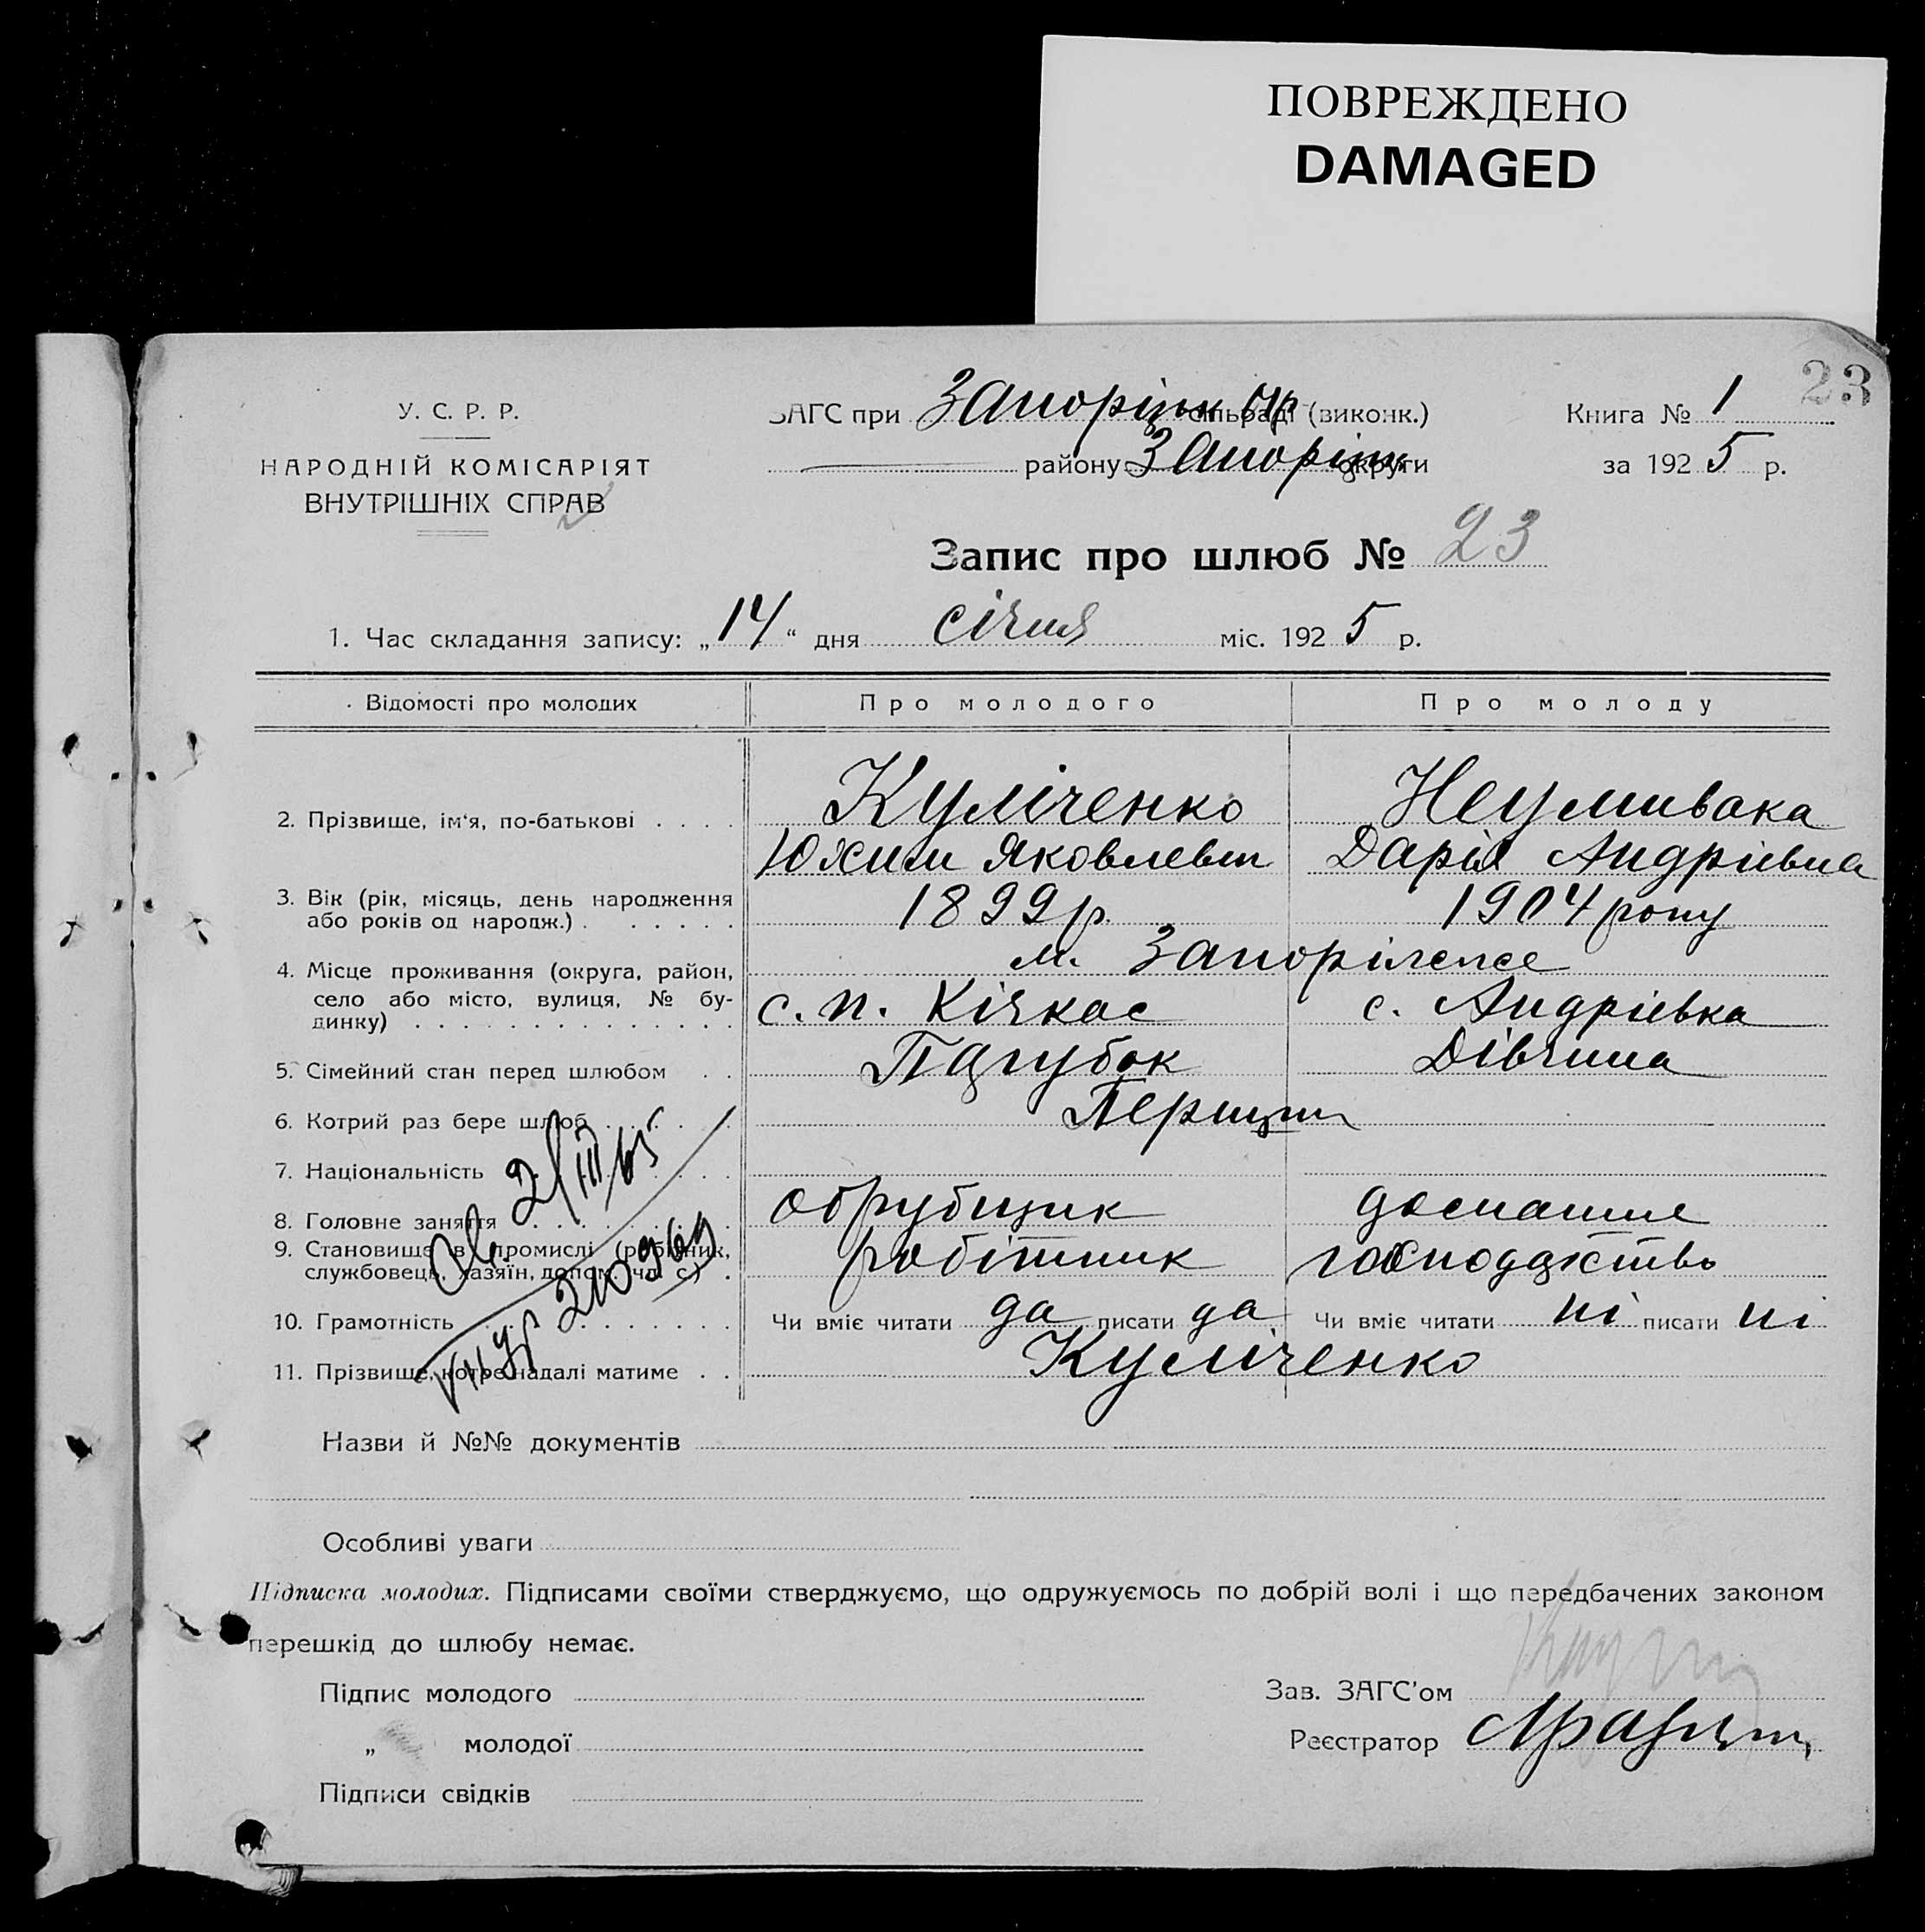 ПОВРЕЖДЕНО
DAMAGED
23
У. С. Р. Р.
НАРОДНІЙ КОМІСАРІЯТ
ВНУТРІШНІХ СПРАВ
ЗАГС при Запоріжк Окр сільраді (виконк.)
району Запоріж округи
Книга № 1
за 1925 р.
Запис про шлюб № 23
1. Час складання запису: „14“ дня січня міс. 1925 р.
Відомості про молодих Про молодого Про молоду
2. Прізвище, ім'я, по-батькові . . . . Куліченко Неумивака
Юхим Яковлевич Дарія Андріївна
3. Вік (рік, місяць, день народження або років од народж.) . . . . . . 1899 р. 1904 року
4. Місце проживання (округа, район, село або місто, вулиця, № будинку) . . . . . . . . . . . . . . м. Запоріжже
с. п. Кічкас с. Андріївка
5. Сімейний стан перед шлюбом . . Парубок Дівчина
6. Котрий раз бере шлюб . . . . . . Перший
7. Національність . . . .
8. Головне заняття . . . . . . . . обрубщик домашнє
9. Становище в промислі (робітник, службовець, хазяїн, допом. чл. с.) . робітник господарство
10. Грамотність . . . . . . . . . Чи вміє читати да писати да Чи вміє читати ні писати ні
11. Прізвище, котре надалі матиме . . Куліченко
2/III 65
210969
Назви й №№ документів
Особливі уваги
Підписка молодих. Підписами своїми стверджуємо, що одружуємось по добрій волі і що передбачених законом
перешкід до шлюбу немає.
Підпис молодого
„ молодої
Підписи свідків
Зав. ЗАГС'ом
Реєстратор